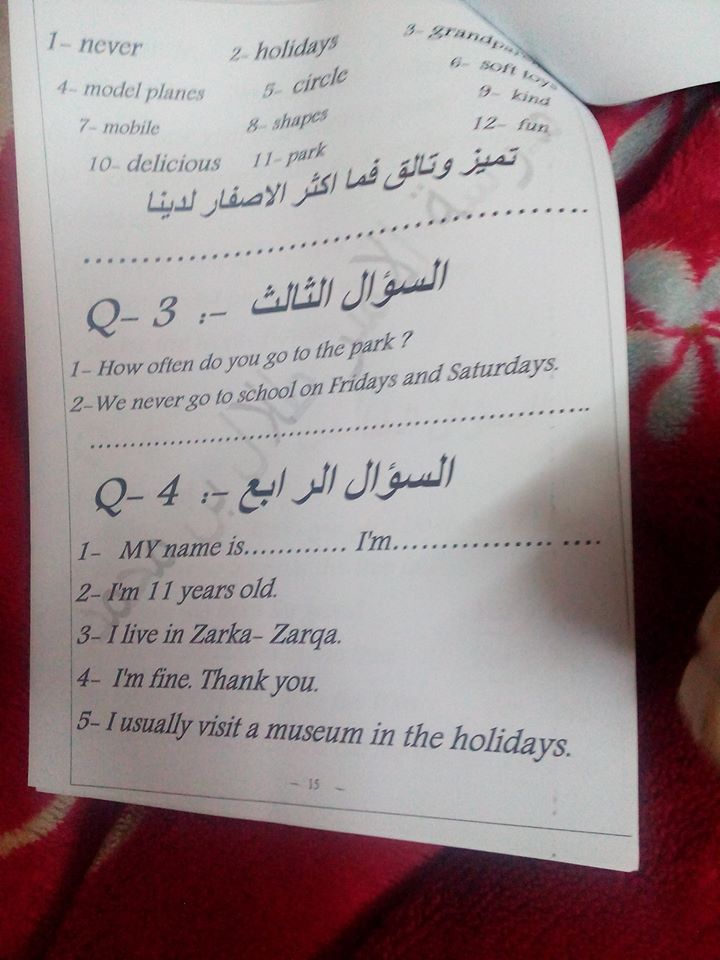 1- never 2- holidays 3- grandparents
4- model planes 5- circle 6- soft toys
7- mobile 8- shapes 9- kind
10- delicious 11- park 12- fun
تميز وتالق فما اكثر الاصفار لدينا
..........................................
Q- 3 :- السؤال الثالث
1- How often do you go to the park ?
2-We never go to school on Fridays and Saturdays.
..........................................
Q- 4 :- السؤال الرابع
1- MY name is............ I'm................ ....
2- I'm 11 years old.
3- I live in Zarka- Zarqa.
4- I'm fine. Thank you.
5- I usually visit a museum in the holidays.
- 15 -